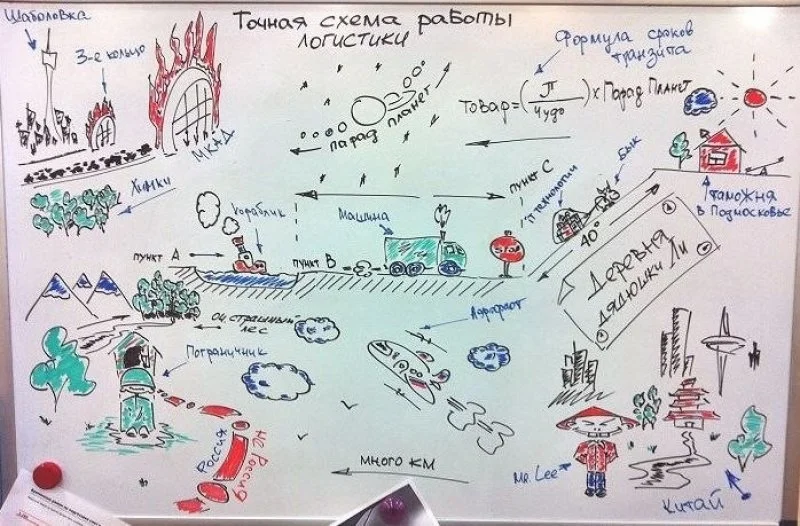 Точная схема работы
логистики
Шаболовка
3-е кольцо
МКАД
Химки
парад планет
Формула сроков
транзита
товар=(П/Чудо)×Парад Планет
таможня
в Подмосковье
пункт А
кораблик
пункт В
Машина
STOP
пункт С
П технологии
Бык
40°
Деревня
дядюшки Ли
оч. страшный
лес
Пограничник
Аэрофлот
Россия
не Россия
много км
Mr. Lee
Китай